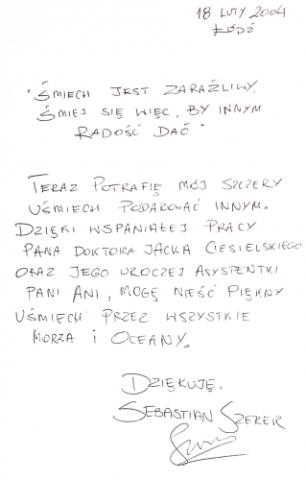 18 LUTY 2004
ŁÓDŹ
"ŚMIECH JEST ZARAŹLIWY.
ŚMIEJ SIĘ WIĘC, BY INNYM
RADOŚĆ DAĆ"
TERAZ POTRAFIĘ MÓJ SZCZERY
UŚMIECH PODAROWAĆ INNYM.
DZIĘKI WSPANIAŁEJ PRACY
PANA DOKTORA JACKA CIESIELSKIEGO
ORAZ JEGO UROCZEJ ASYSTENTKI
PANI ANI, MOGĘ NIEŚĆ PIĘKNY
UŚMIECH PRZEZ WSZYSTKIE
MORZA I OCEANY.
DZIĘKUJĘ,
SEBASTIAN